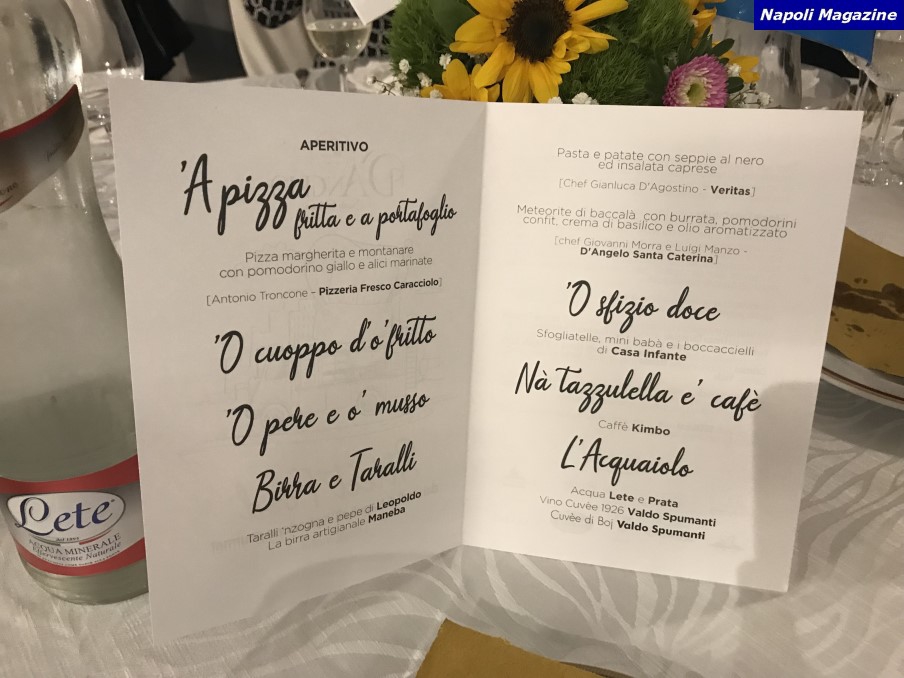 Napoli Magazine
APERITIVO
'A pizza
fritta e a portafoglio
Pizza margherita e montanare
con pomodorino giallo e alici marinate
[Antonio Troncone - Pizzeria Fresco Caracciolo]
'O cuoppo d'o' fritto
'O pere e o' musso
Birra e Taralli
Taralli 'nzogna e pepe di Leopoldo
La birra artigianale Maneba
Pasta e patate con seppie al nero
ed insalata caprese
[Chef Gianluca D'Agostino - Veritas]
Meteorite di baccalà con burrata, pomodorini
confit, crema di basilico e olio aromatizzato
[chef Giovanni Morra e Luigi Manzo -
D'Angelo Santa Caterina]
'O sfizio doce
Sfogliatelle, mini babà e i boccaccielli
di Casa Infante
Nà tazzulella e' cafè
Caffè Kimbo
L'Acquaiolo
Acqua Lete e Prata
Vino Cuvèe 1926 Valdo Spumanti
Cuvèe di Boj Valdo Spumanti
Lete
dal 1893
ACQUA MINERALE
Effervescente Naturale